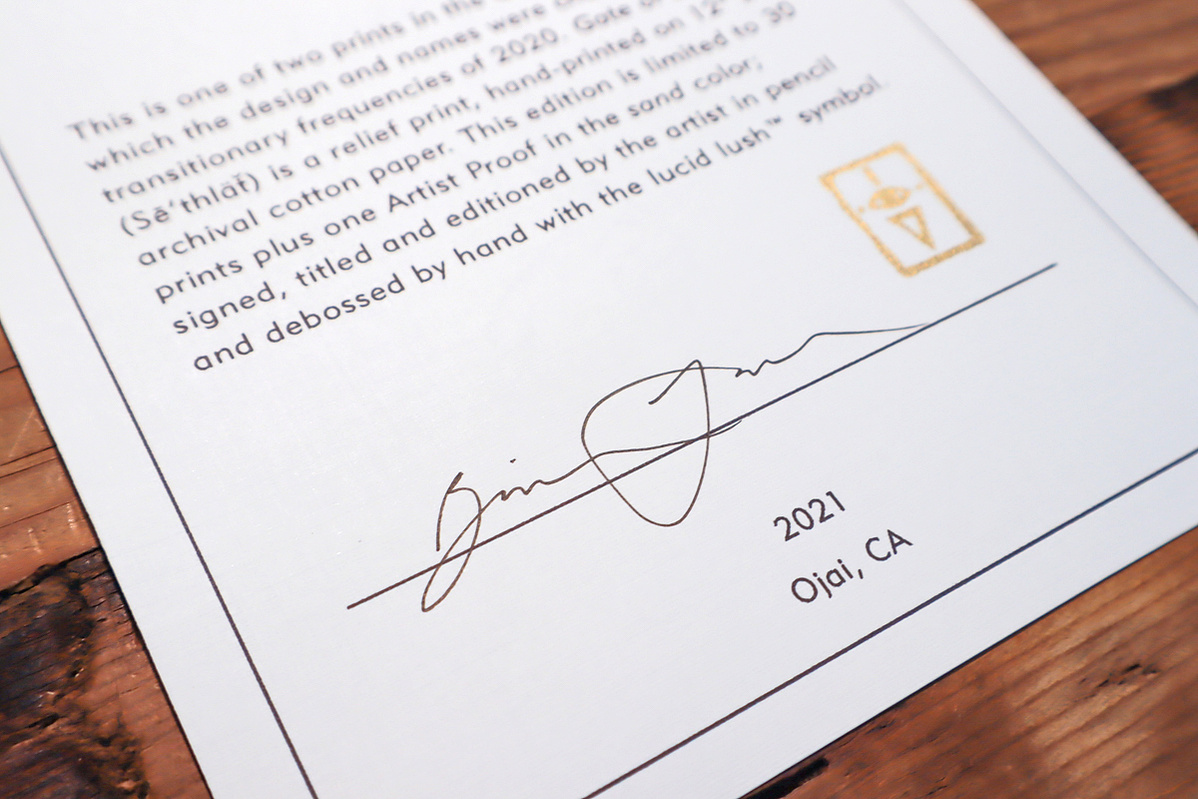 This is one of two prints in the
which the design and names were
transitionary frequencies of 2020. Gate
(Sē'thlăt) is a relief print, hand-printed on 12"
archival cotton paper. This edition is limited to 30
prints plus one Artist Proof in the sand color;
signed, titled and editioned by the artist in pencil
and debossed by hand with the lucid lush™ symbol.
2021
Ojai, CA